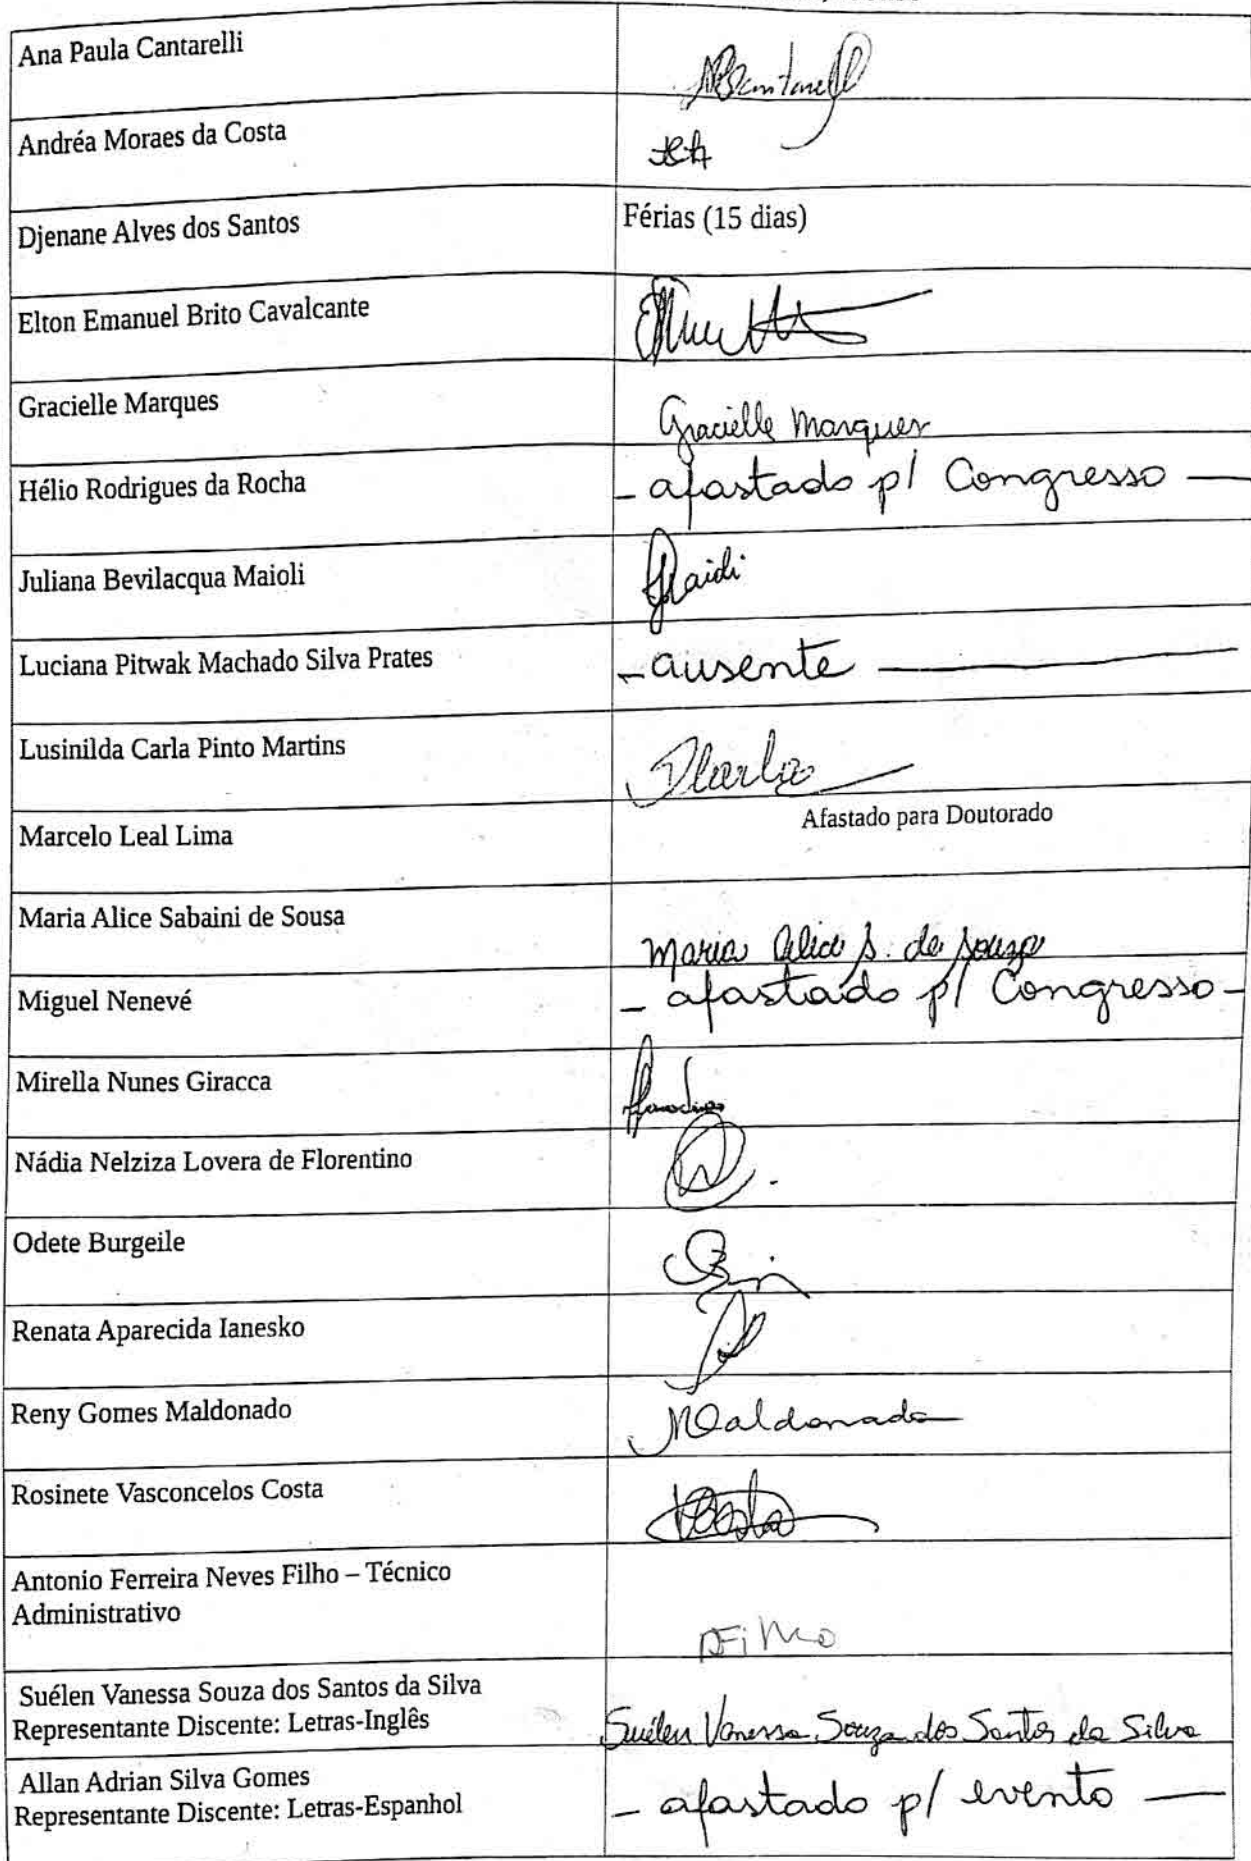 Ana Paula Cantarelli
Andréa Moraes da Costa
Djenane Alves dos Santos
Férias (15 dias)
Elton Emanuel Brito Cavalcante
Gracielle Marques
Gracielle Marques
Hélio Rodrigues da Rocha
- afastado p/ Congresso -
Juliana Bevilacqua Maioli
Luciana Pitwak Machado Silva Prates
- ausente -
Lusinilda Carla Pinto Martins
Marcelo Leal Lima
Afastado para Doutorado
Maria Alice Sabaini de Sousa
Maria Alice S. de Souza
Miguel Nenevé
- afastado p/ Congresso -
Mirella Nunes Giracca
Nádia Nelziza Lovera de Florentino
Odete Burgeile
Renata Aparecida Ianesko
Reny Gomes Maldonado
Maldonado
Rosinete Vasconcelos Costa
Antonio Ferreira Neves Filho – Técnico
Administrativo
Suélen Vanessa Souza dos Santos da Silva
Representante Discente: Letras-Inglês
Suélen Vanessa Souza dos Santos da Silva
Allan Adrian Silva Gomes
Representante Discente: Letras-Espanhol
- afastado p/ evento -